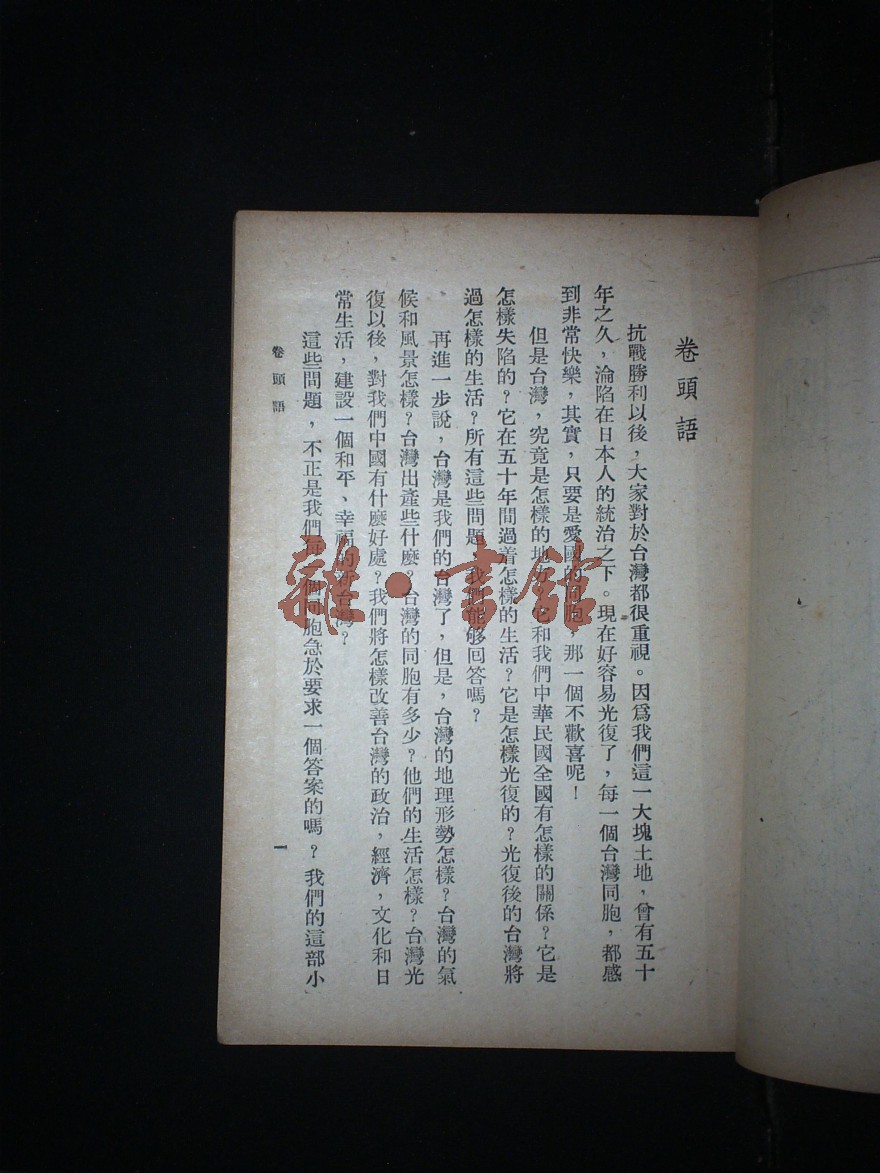 卷頭語
抗戰勝利以後，大家對於台灣都很重視。因爲我們這一大塊土地，曾有五十
年之久，淪陷在日本人的統治之下。現在好容易光復了，每一個台灣同胞，都感
到非常快樂，其實，只要是愛國的同胞，那一個不歡喜呢！
但是台灣，究竟是怎樣的地方？它和我們中華民國全國有怎樣的關係？它是
怎樣失陷的？它在五十年間過着怎樣的生活？它是怎樣光復的？光復後的台灣將
過怎樣的生活？所有這些問題，我們能够回答嗎？
再進一步說，台灣是我們的台灣了，但是，台灣的地理形勢怎樣？台灣的氣
候和風景怎樣？台灣出產些什麼？台灣的同胞有多少？他們的生活怎樣？台灣光
復以後，對我們中國有什麼好處？我們將怎樣改善台灣的政治，經濟，文化和日
常生活，建設一個和平、幸福的新台灣？
這些問題，不正是我們每一個同胞急於要求一個答案的嗎？我們的這部小
卷頭語
一
雜·書館